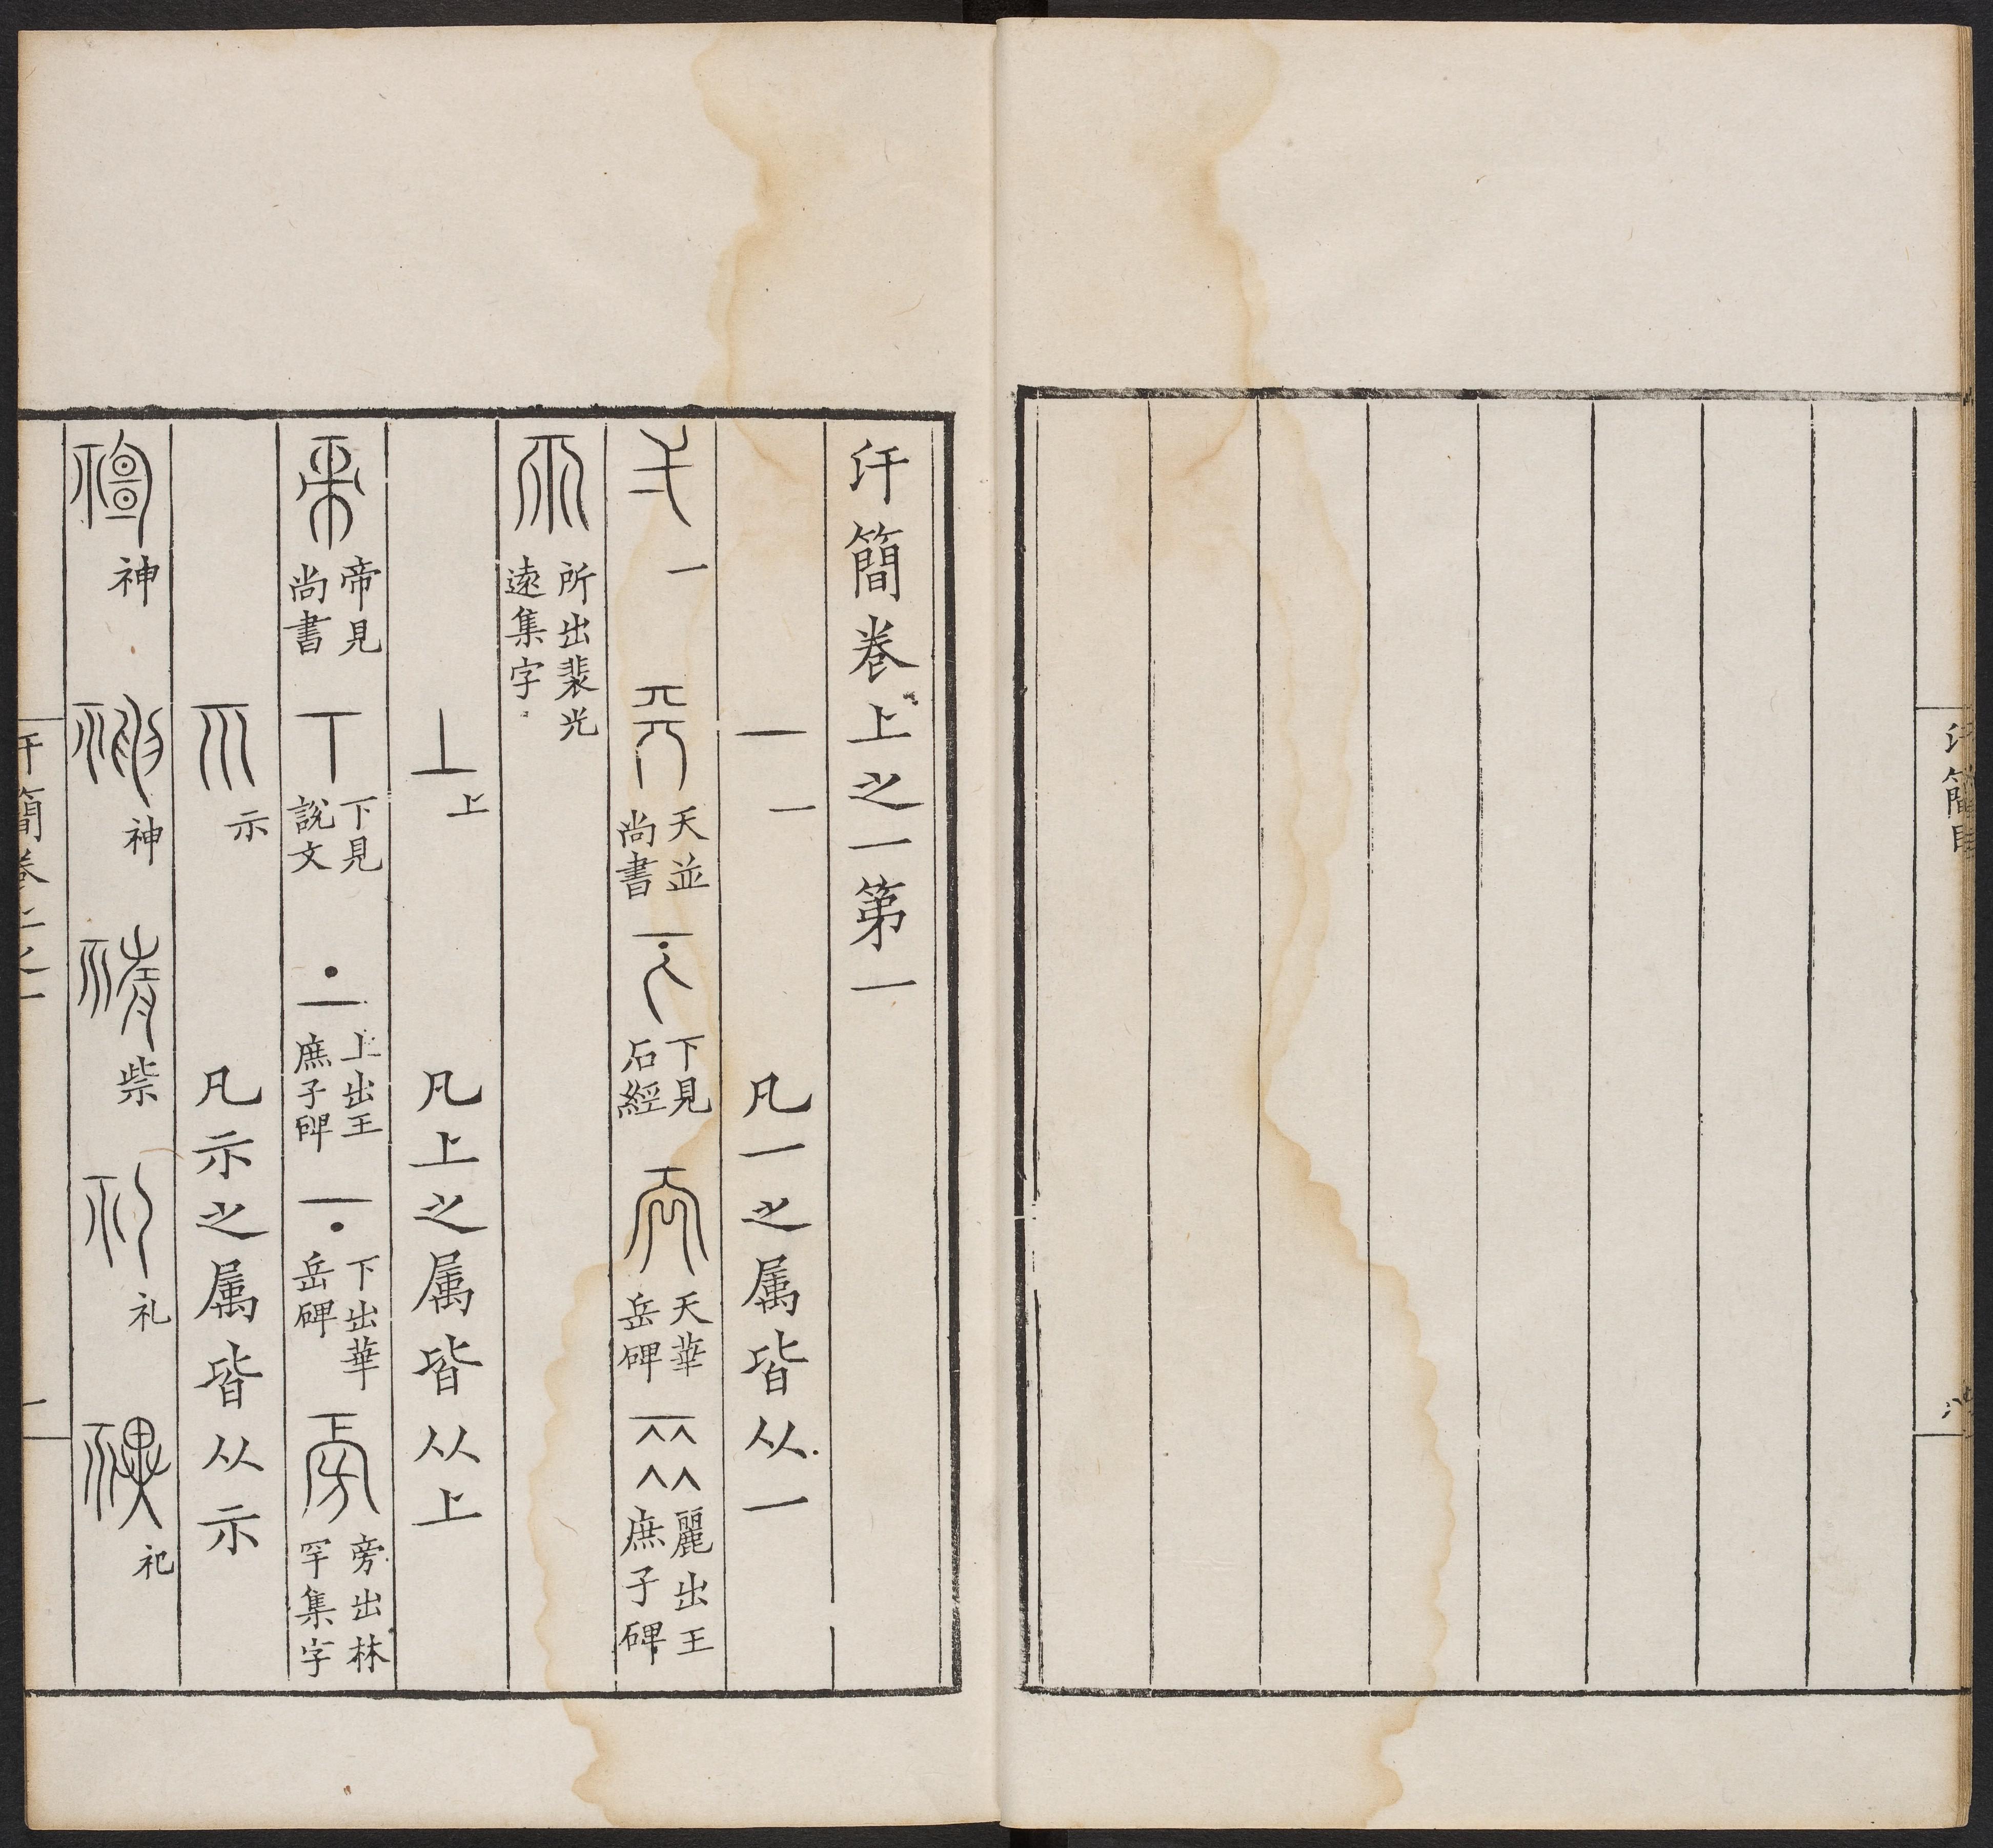 汗簡目
汗簡卷上之一第一
一 一 凡一之属皆从一
弌 一 天並尚書 下見石經 天華岳碑 麗出王庶子碑
所出裴光遠集字
丄 上 凡上之属皆从上
帝見尚書 丅 下見說文 上出王庶子碑 下出華岳碑 旁出林罕集字
示 凡示之属皆从示
神 神 祡 礼 祀
汗簡卷上之一 一